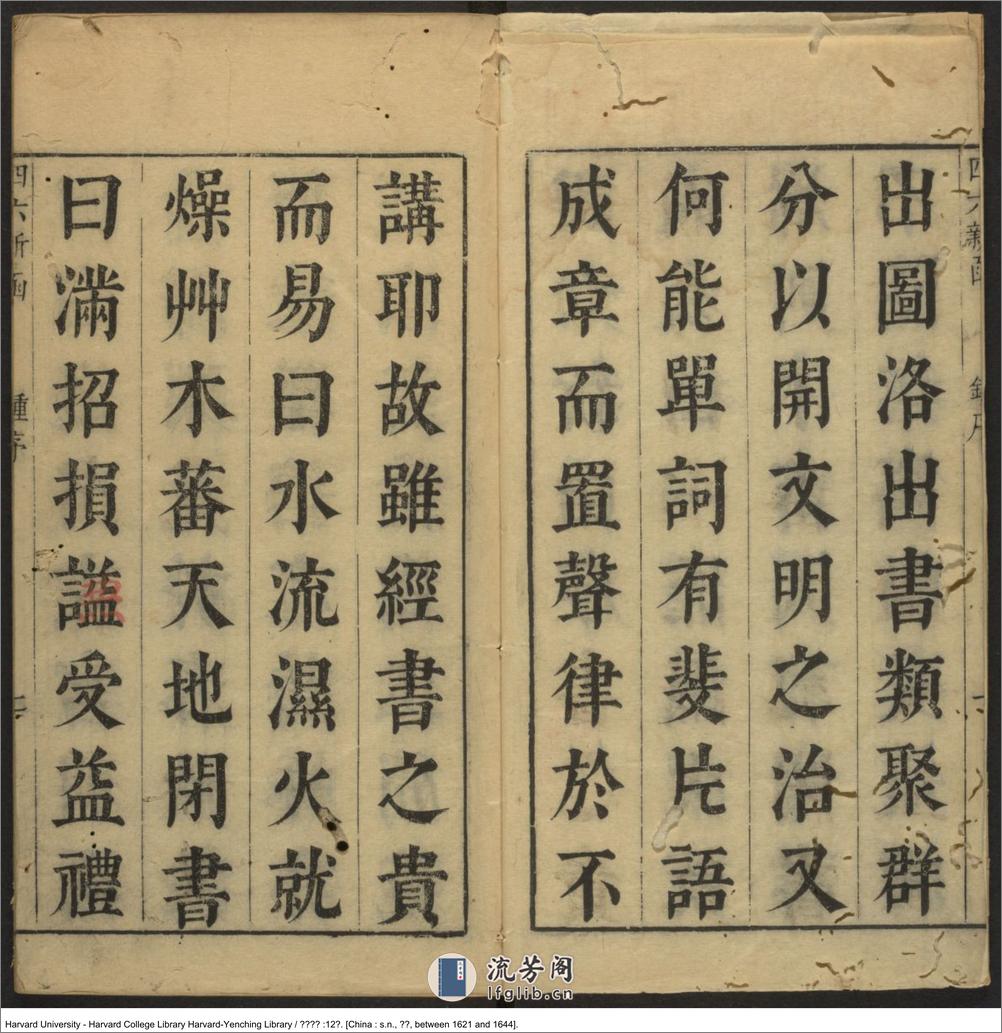 四六新函 鍾序
岀圖洛出書類聚群
分以開文明之治又
何能單詞有斐片語
成章而置聲律於不
講耶故雖經書之貴
而易曰水流濕火就
燥艸木蕃天地閉書
曰滿招損謚受益禮
四六新函 鍾序
流芳阁
lfglib.cn
Harvard University - Harvard College Library Harvard-Yenching Library / ???? :12?. [China : s.n., ??, between 1621 and 1644].